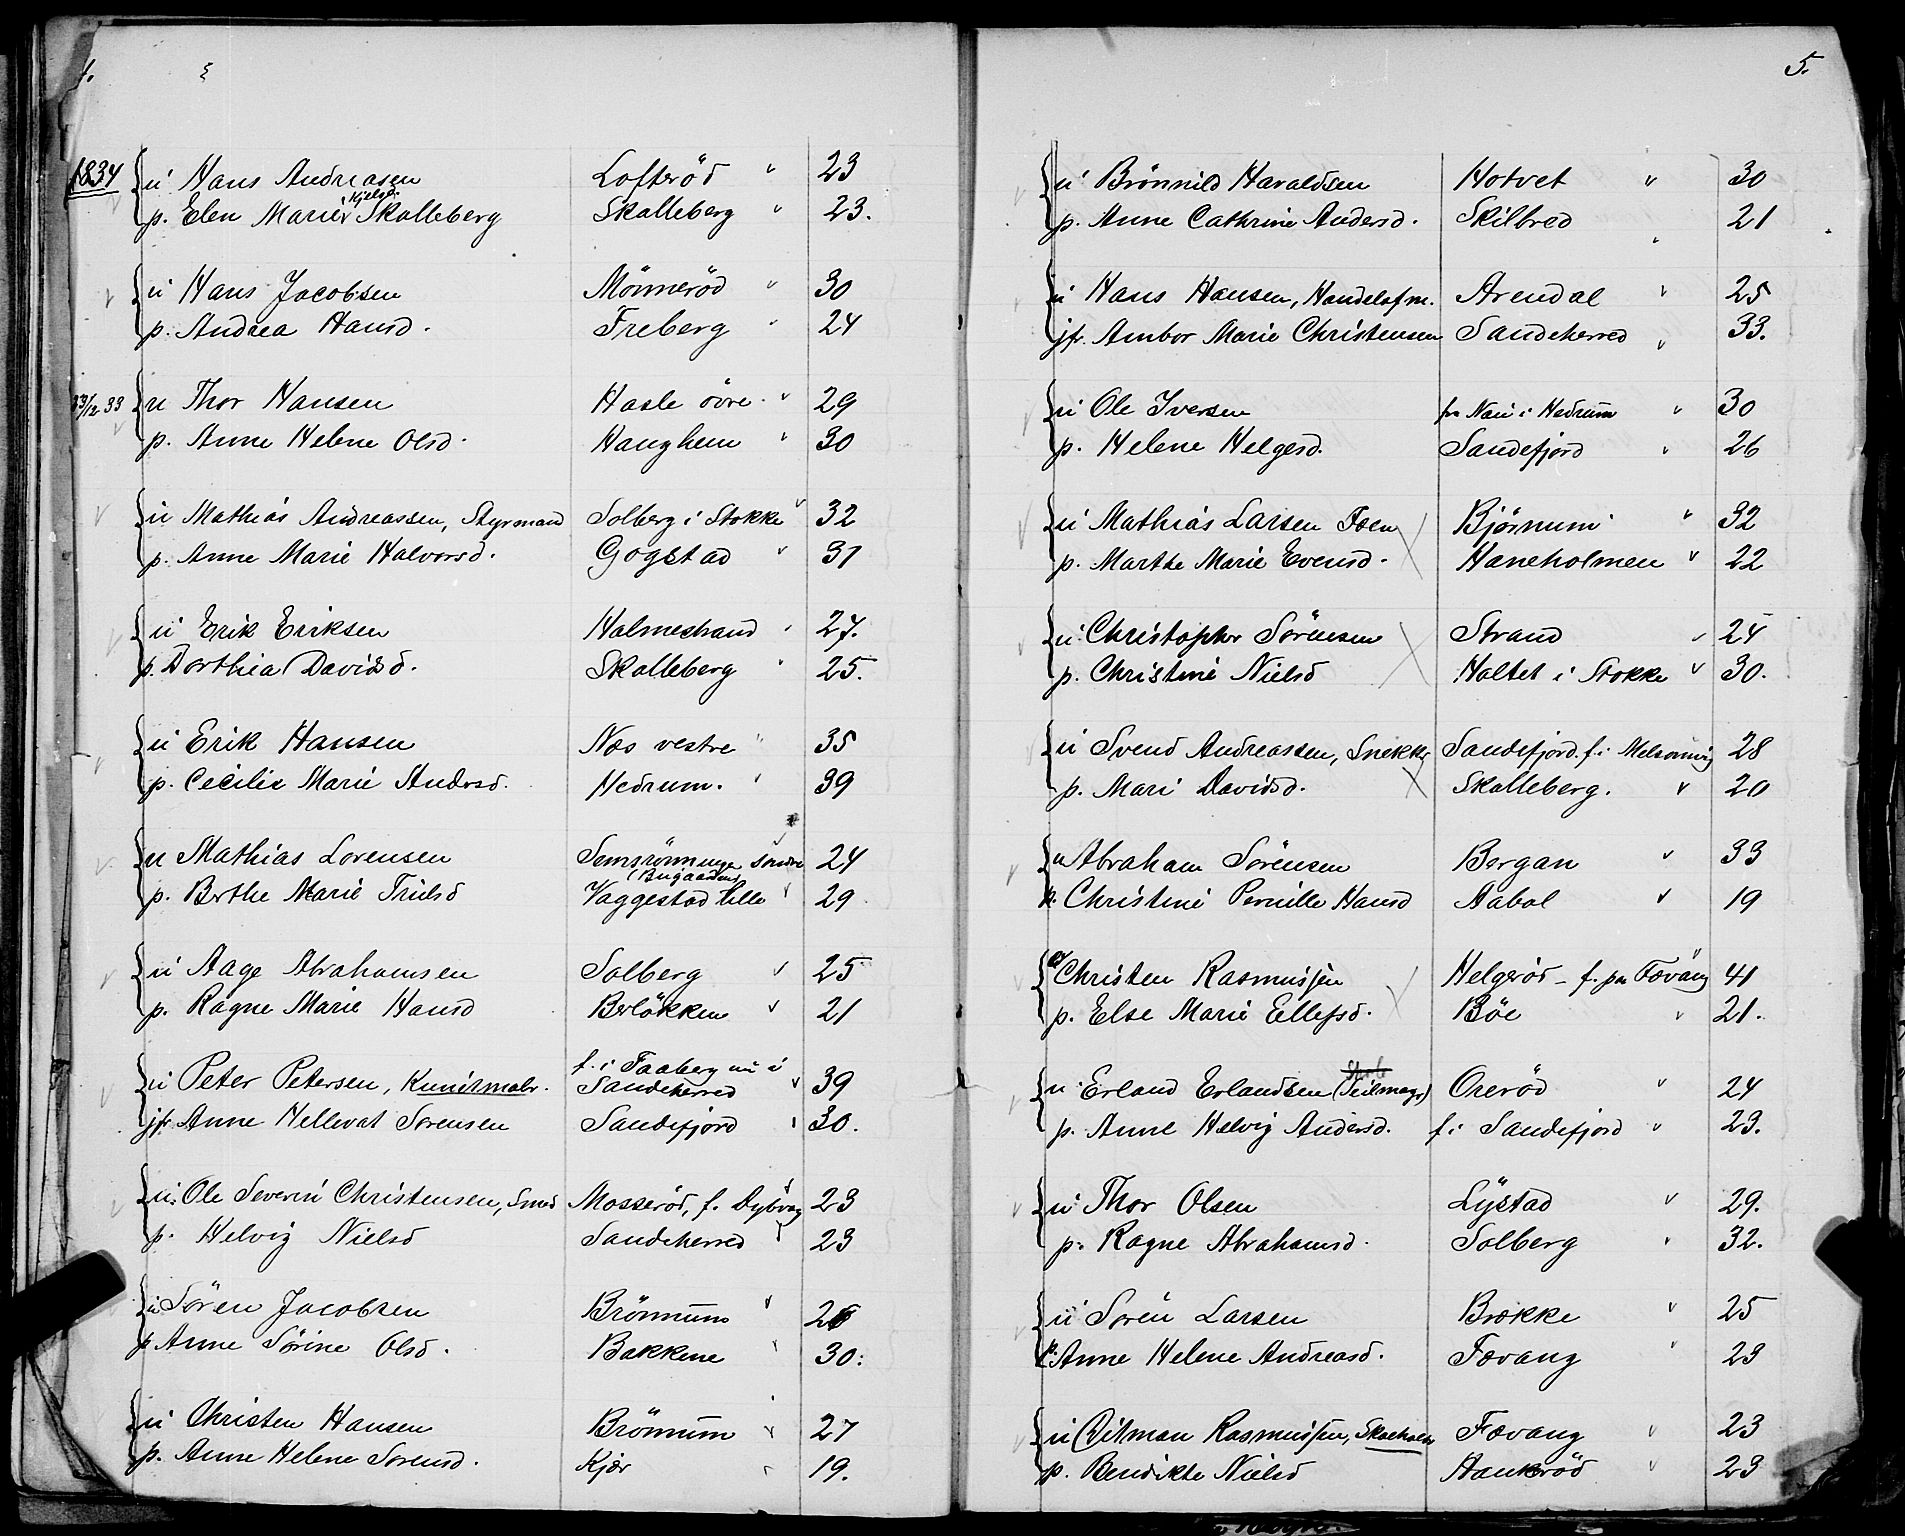 4.
1834 u Hans Andreasen Lofteröd " 23
Kjeld.
p. Elen Marie Skalleberg Skalleberg " 23.
u Hans Jacobsen Mönneröd " 30
p. Andrea Hansd. Freberg " 24
33 u Thor Hansen Hasle övre " 29
p. Anne Helene Olsd. Haughem " 30
u Mathias Andreassen, Styrmand Solberg i Stokke " 32
p. Anne Marie Halvorsd. Gogstad " 31
u Erik Eriksen Holmestrand " 27.
p. Dorthea Davidsd. Skalleberg " 25.
u Erik Hansen Næs vestre " 35
p. Cecilie Marie Andersd. Hedrum. " 39
u Mathias Lorensen Semsrönningen söndre 24
(Bugaarden)
p. Berthe Marie Trulsd Vaggestad lille " 29
u Aage Abrahamsen Solberg " 25
p. Ragne Marie Hansd Berlökken " 21
f. i Faaberg nu i
u Peter Petersen, Kunstmaler. Sandeherred " 39
jfr. Anne Hellevat Sörensen Sandefjord " 30.
u. Ole Severin Christensen, Smed Mosseröd, f. Dybvaag 23
p. Helvig Nielsd Sandeherred " 23
u Sören Jacobsen Brönnum " 26
p Anne Sörine Olsd. Bakkene " 30.
u Christen Hansen Brönnum " 27
p. Anne Helene Sorensd. Kjær " 19.
5.
u Brönnild Haraldsen Hotvet " 30
p. Anne Cathrine Andersd. Skilbred " 21
u Hans Hansen, Handelsfm. Arendal " 25
jfr. Ambor Marie Christensen Sandeherred " 33.
u Ole Iversen fra Nau i Hedrum " 30
p. Helene Helgesd. Sandefjord " 26
u Mathias Larsen Foen Björnum " 32
p. Marthe Marie Evensd. Haneholmen " 22
u. Christopher Sörensen Strand " 24
p. Christine Nielsd Holtet i Stokke " 30.
u Svend Andreassen, Snekker Sandefjord. f. i Melsomvig 28
p. Mari Davidsd. Skalleberg. " 20
u Abraham Sörensen Bergan " 33
p. Christine Pernille Hansd Aabol " 19
Christen Rasmussen Helgeröd - f. paa Fævang 41
p. Else Marie Ellefsd. Böe " 21.
u. Erland Erlandsen Oreröd " 24
p. Anne Helvig Andersd. f. i Sandefjord " 23.
u Thor Olsen Lystad " 29.
p. Ragne Abrahamsd. Solberg " 32.
u Soren Larsen Brække " 25
p. Anne Helene Andreasd. Fævang " 23
u Ditman Rasmussen, Skoeholder Fævang " 23
p. Bendikte Nielsd Haukeröd " 23